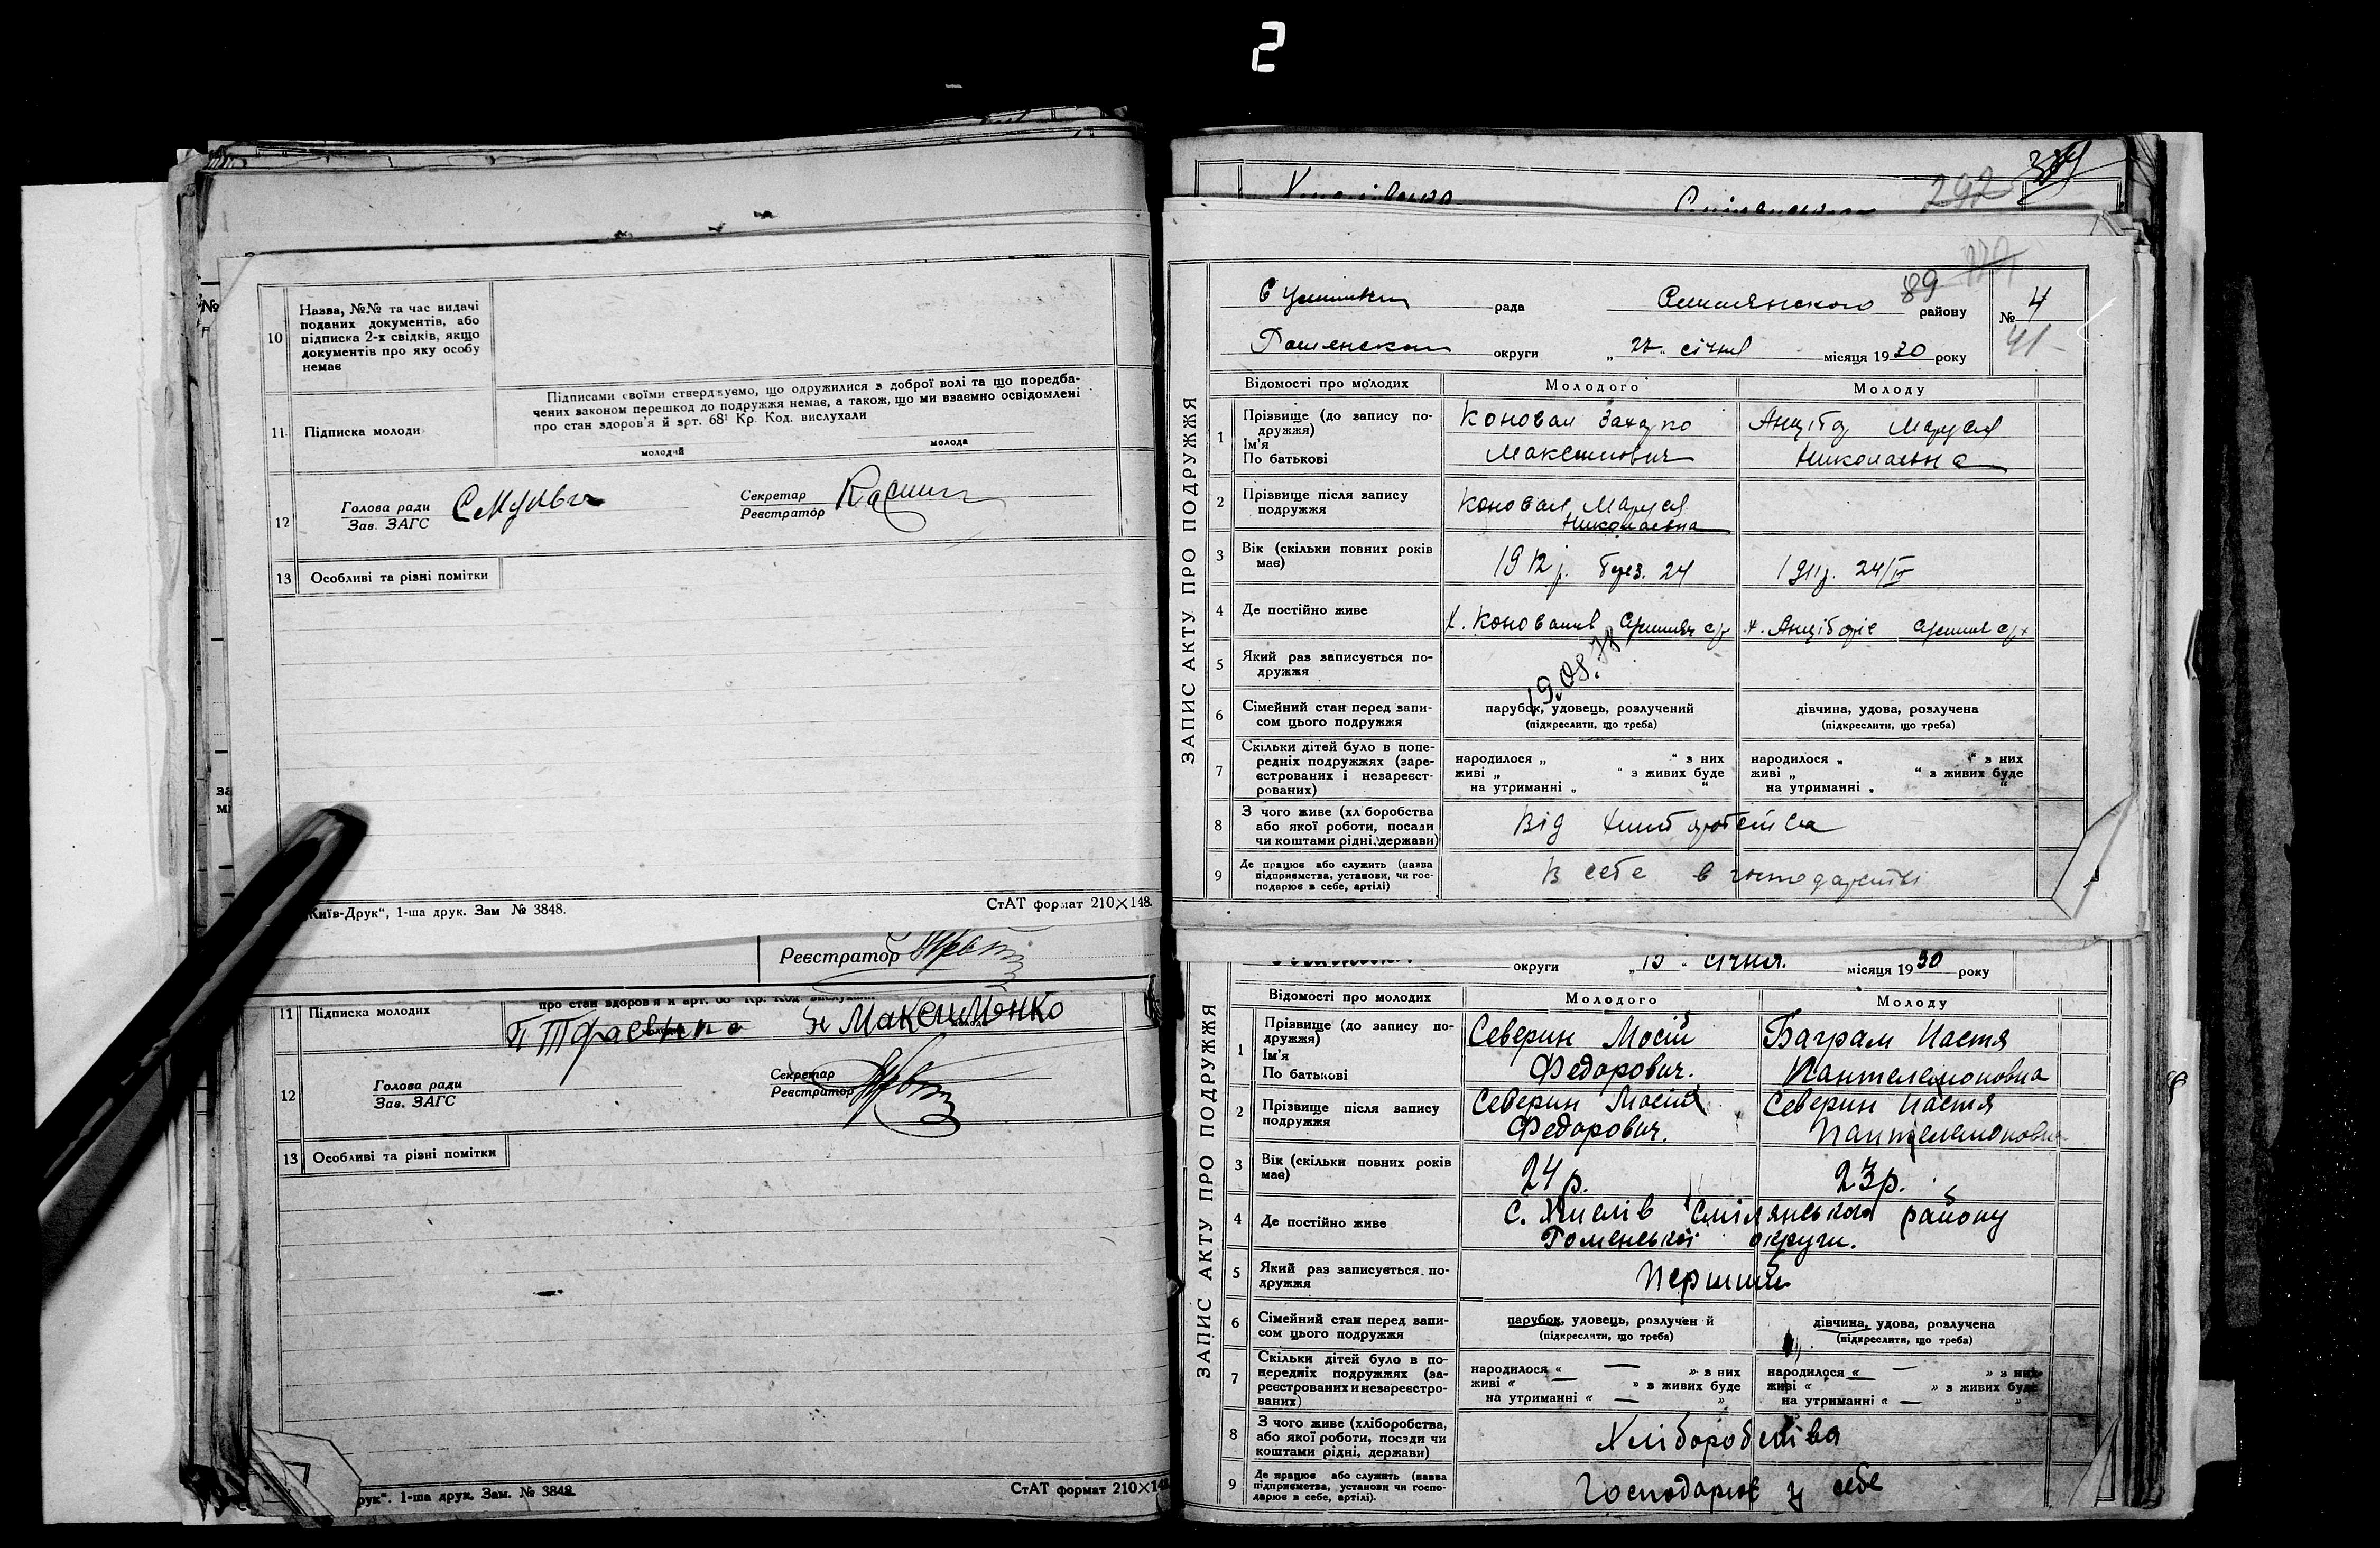 2
292
№
10
Назва, №№ та час видачі
поданих документів, або
підписка 2-х свідків, якщо
документів про яку особу
немає
11
Підписка молоди
Підписами своїми стверджуємо, що одружилися з доброї волі та що поредба-
чених законом перешкод до подружжя немає, а також, що ми взаємно освідомлені
про стан здоров'я й арт. 68¹ Кр. Код. вислухали
молодий
молода
12
Голова ради
Зав. ЗАГС
Секретар
Реєстратор
13 Особливі та різні помітки
Київ-Друк“, 1-ша друк. Зам № 3848.
СтАТ формат 210×148.
Реєстратор
про стан здоров'я й арт. 68 Кр. Код. вислухали
11 Підписка молодих
Максименко
12
Голова ради
Зав. ЗАГС
Секретар
Реєстратор
13 Особливі та різні помітки
рук“. 1-ша друк. Зам. № 3848.
СтАТ формат 210×148
ЗАПИС АКТУ ПРО ПОДРУЖЖЯ
рада
89
району
№ 4
41-
округи „27“ січня місяця 1930 року
Відомості про молодих
Молодого
Молоду
1
Прізвище (до запису по-
дружжя)
Ім'я
По батькові
Коновал
Максимович
Маруся
Николаевна
2
Прізвище після запису
подружжя
Коновал Маруся
Николаевна
3
Вік (скільки повних років
має)
1912 р. берез. 24
1911р. 24/IV
4
Де постійно живе
х. Коновалів
х. Анциборів
5
Який раз записується по-
дружжя
19.08.
6
Сімейний стан перед запи-
сом цього подружжя
парубок, удовець, розлучений
(підкреслити, що треба)
дівчина, удова, розлучена
(підкреслити, що треба)
7
Скільки дітей було в попе-
редніх подружжях (заре-
єстрованих і незареєст-
рованих)
народилося „ “ з них
живі „ “ з живих буде
на утриманні „ “
народилося „ “ з них
живі „ “ з живих буде
на утриманні „ “
8
З чого живе (хліборобства
або якої роботи, посади
чи коштами рідні, держави)
Від хліборобства
9
Де працює або служить (назва
підприємства, установи, чи гос-
подарює в себе, артілі)
В себе в господарстві
ЗАПИС АКТУ ПРО ПОДРУЖЖЯ
округи „15“ січня. місяця 1930 року
Відомості про молодих
Молодого
Молоду
1
Прізвище (до запису по-
дружжя)
Ім'я
По батькові
Северин Мосій
Федорович.
Баграм Настя
Пантелемоновна
2
Прізвище після запису
подружжя
Северин Мосій
Федорович.
Северин Настя
Пантелемоновна
3
Вік (скільки повних років
має)
24 р.
23р.
4
Де постійно живе
с. Хмелів Смілянського району
Роменської округи.
5
Який раз записується по-
дружжя
Перший
6
Сімейний стан перед запи-
сом цього подружжя
парубок, удовець, розлучен й
(підкреслити, що треба)
дівчина, удова, розлучена
(підкреслити, що треба)
7
Скільки дітей було в по-
передніх подружжях (за-
реєстрованих и незареєстро-
ваних)
народилося « — » з них
живі « — » з живих буде
на утриманні « — »
народилося « — » з них
живі « » з живих буде
на утриманні « — »
8
З чого живе (хліборобства,
або якої роботи, посади чи
коштами рідні, держави)
Хліборобства
9
Де працює або служить (назва
підприємства, установи чи госпо-
дарює в себе, артілі).
Господарює у себе